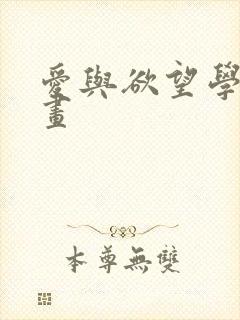 愛與欲望學
畫
本尊無雙